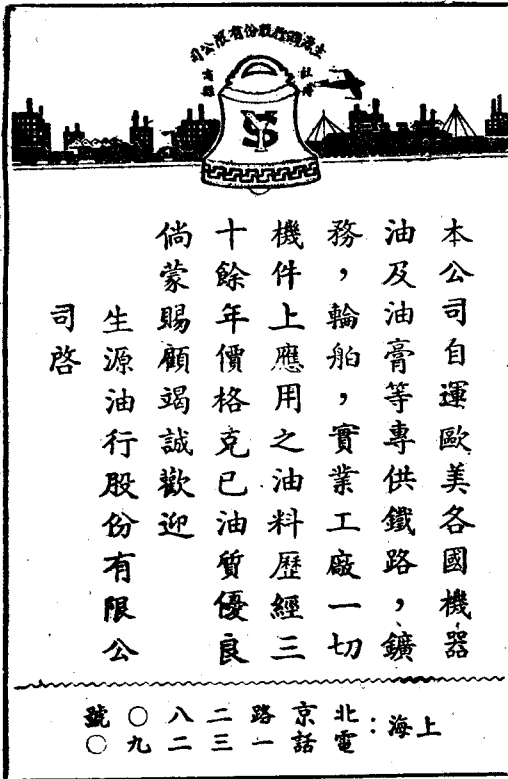 生源油行股份有限公司
本公司自運歐美各國機器
油及油膏等專供鐵路，鑛
務，輪舶，實業工廠一切
機件上應用之油料歷經三
十餘年價格克已油質優良
倘蒙賜顧竭誠歡迎
生源油行股份有限公
司啓
上海：
北京路二八〇號
電話一三二九〇